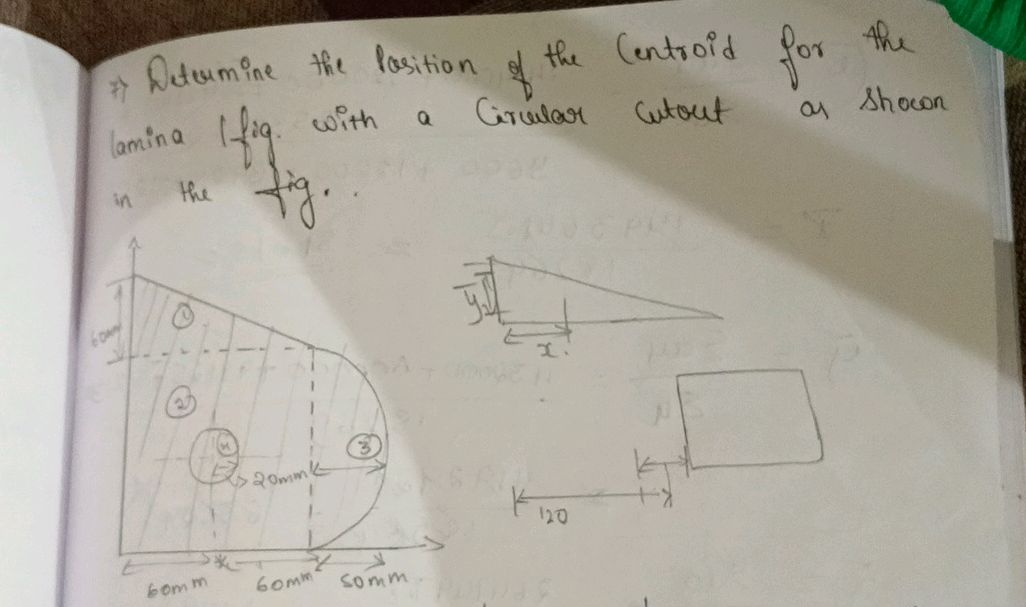 ⇒ Determine the Position of the Centroid for the
lamina / fig. with a Circular Cutout as shown
in the fig..
60mm
1
2
4
20mm
3
60mm
60mm
50mm
y
x.
120